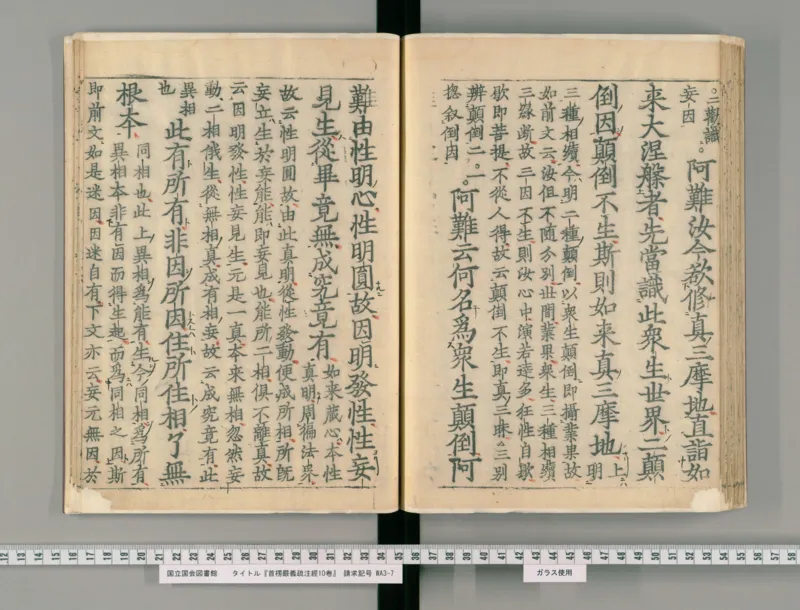 ○二勸識
妄因
○阿難汝今欲修真三摩地直詣如
来大涅槃者先當識此衆生世界二顛
倒因顛倒不生斯則如来真三摩地
上
明
三種相續今明二種顛倒以衆生顛倒即攝業果故
如前文云汝但不隨分別世間業果衆生三種相續
三緣斷故三因不生則汝心中演若達多狂性自歇
歇即菩提不從人得故云顛倒不生即真三昧三別
辨顛倒二一
捴叙倒因
○阿難云何名爲衆生顛倒阿
難由性明心性明圓故因明發性性妄
見生從畢竟無成究竟有
如来蔵心本性
真明周徧法界
故云性明圓故由此真明從性發動便成所相所既
妄立生於妄能能即妄見也能所二相俱不離真故
云因明發性性妄見生元是一真本来無相忽然妄
動二相俄生從無相真成有相妄故云成究竟有此
異相
也
此有所有非因所因住所住相了無
根本
同相也此上異相爲能有生今同相爲所有
異相本非有因而得生起而爲同相之因斯
即前文如是迷因因迷自有下文亦云妄元無因於
国立国会図書館 タイトル『首楞嚴義疏注經10巻』 請求記号 WA3-7
ガラス使用